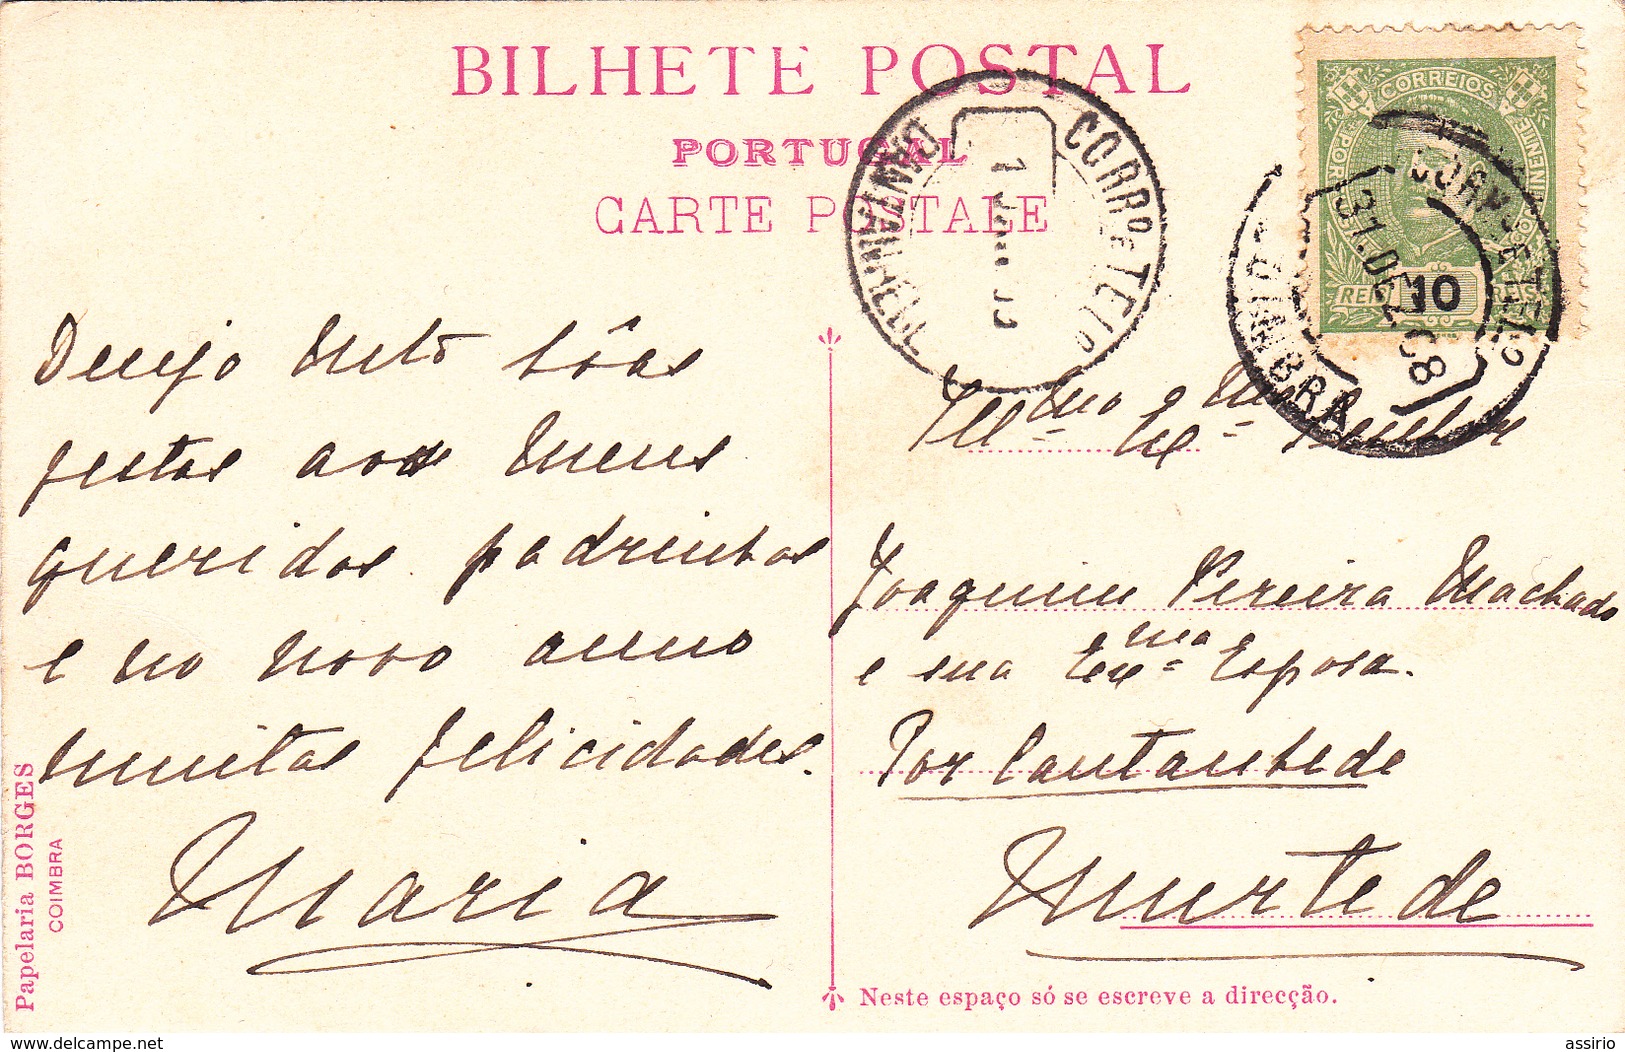 BILHETE POSTAL
PORTUGAL
CARTE POSTALE
CORREIOS
PORTUGAL CONTINENTE
REIS 10 REIS
CORRº E TELº
CANTANHEDE
1
CORRº E TELº
31. DEZ 08
COIMBRA
Desejo muito bôas
festas aos meus
queridos padrinhos
e no novo anno
muitas felicidades.
Maria
Illmo e Exmo Senhor
Joaquim Pereira Machado
e sua Exma Esposa.
Por Cantanhede
Murtede
Papelaria BORGES
COIMBRA
Neste espaço só se escreve a direcção.
delcampe.net
assirio